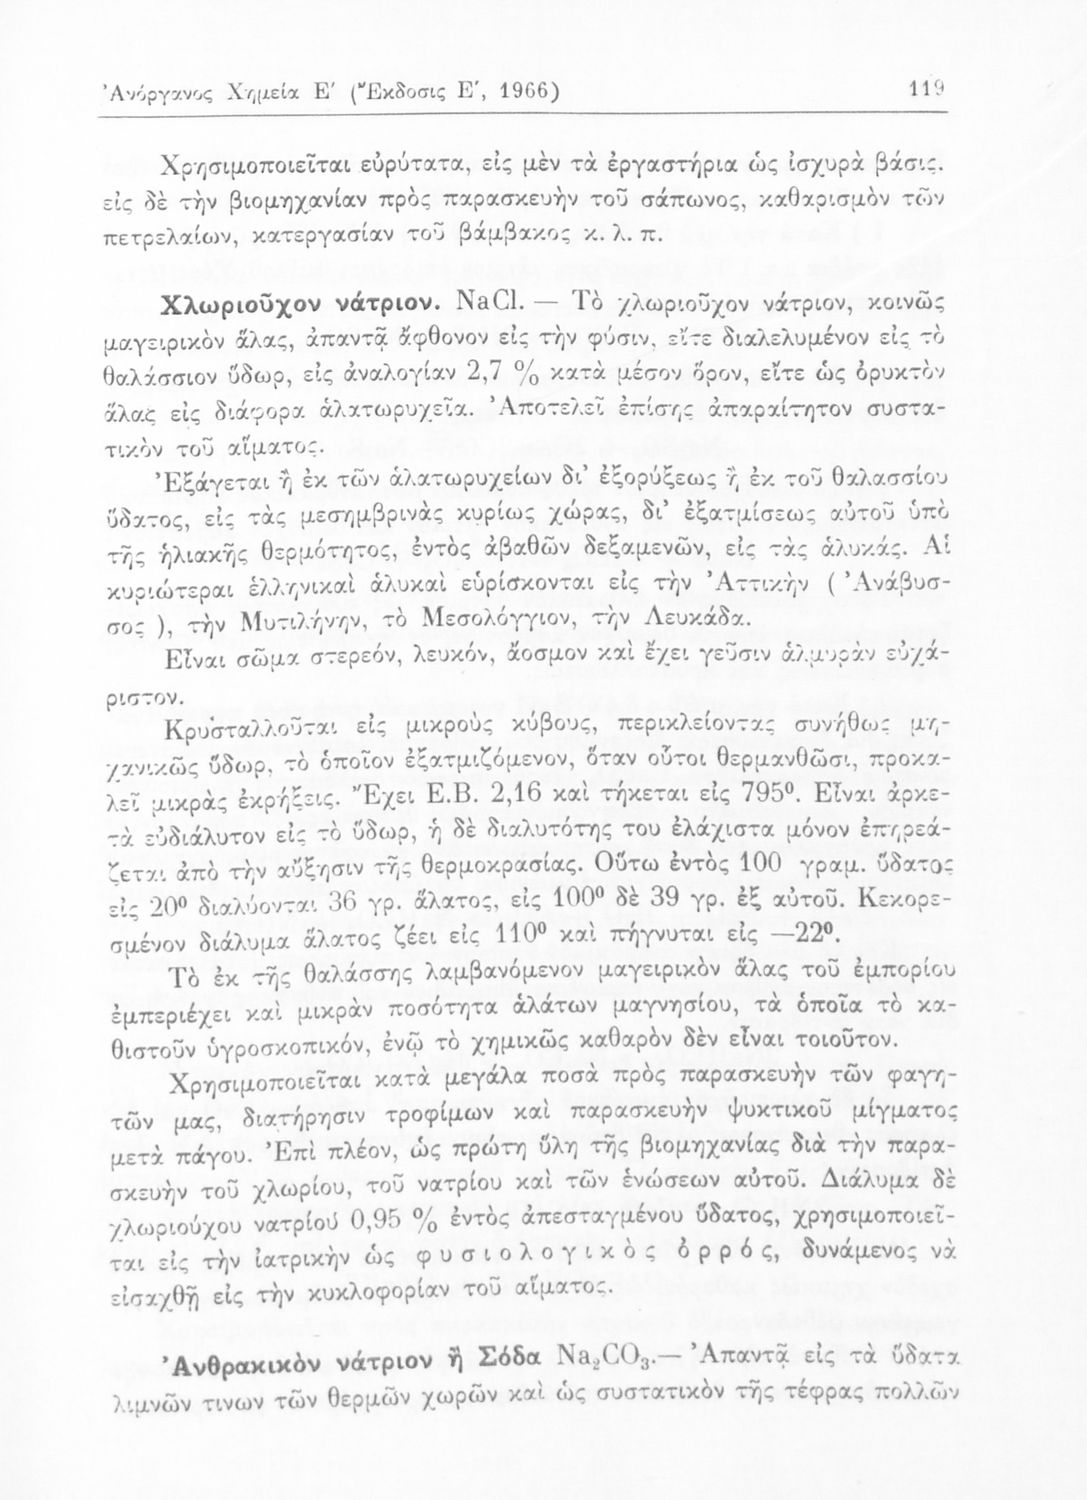 Ἀνόργανος Χημεία Ε' (Ἔκδοσις Ε', 1966) 119
Χρησιμοποιεῖται εὐρύτατα, εἰς μὲν τὰ ἐργαστήρια ὡς ἰσχυρὰ βάσις.
εἰς δὲ τὴν βιομηχανίαν πρὸς παρασκευὴν τοῦ σάπωνος, καθαρισμὸν τῶν
πετρελαίων, κατεργασίαν τοῦ βάμβακος κ. λ. π.
Χλωριοῦχον νάτριον. NaCl. — Τὸ χλωριοῦχον νάτριον, κοινῶς
μαγειρικὸν ἅλας, ἀπαντᾷ ἄφθονον εἰς τὴν φύσιν, εἴτε διαλελυμένον εἰς τὸ
θαλάσσιον ὕδωρ, εἰς ἀναλογίαν 2,7 % κατὰ μέσον ὅρον, εἴτε ὡς ὀρυκτὸν
ἅλας εἰς διάφορα ἁλατωρυχεῖα. Ἀποτελεῖ ἐπίσης ἀπαραίτητον συστα-
τικὸν τοῦ αἵματος.
Ἐξάγεται ἢ ἐκ τῶν ἁλατωρυχείων δι' ἐξορύξεως ἢ ἐκ τοῦ θαλασσίου
ὕδατος, εἰς τὰς μεσημβρινὰς κυρίως χώρας, δι' ἐξατμίσεως αὐτοῦ ὑπὸ
τῆς ἡλιακῆς θερμότητος, ἐντὸς ἀβαθῶν δεξαμενῶν, εἰς τὰς ἁλυκάς. Αἱ
κυριώτεραι ἑλληνικαὶ ἁλυκαὶ εὑρίσκονται εἰς τὴν Ἀττικὴν ( Ἀνάβυσ-
σος ), τὴν Μυτιλήνην, τὸ Μεσολόγγιον, τὴν Λευκάδα.
Εἶναι σῶμα στερεόν, λευκόν, ἄοσμον καὶ ἔχει γεῦσιν ἁλμυρὰν εὐχά-
ριστον.
Κρυσταλλοῦται εἰς μικροὺς κύβους, περικλείοντας συνήθως μη-
χανικῶς ὕδωρ, τὸ ὁποῖον ἐξατμιζόμενον, ὅταν οὗτοι θερμανθῶσι, προκα-
λεῖ μικρὰς ἐκρήξεις. Ἔχει Ε.Β. 2,16 καὶ τήκεται εἰς 795⁰. Εἶναι ἀρκε-
τὰ εὐδιάλυτον εἰς τὸ ὕδωρ, ἡ δὲ διαλυτότης του ἐλάχιστα μόνον ἐπηρεά-
ζεται ἀπὸ τὴν αὔξησιν τῆς θερμοκρασίας. Οὕτω ἐντὸς 100 γραμ. ὕδατος
εἰς 20⁰ διαλύονται 36 γρ. ἅλατος, εἰς 100⁰ δὲ 39 γρ. ἐξ αὐτοῦ. Κεκορε-
σμένον διάλυμα ἅλατος ζέει εἰς 110⁰ καὶ πήγνυται εἰς —22⁰.
Τὸ ἐκ τῆς θαλάσσης λαμβανόμενον μαγειρικὸν ἅλας τοῦ ἐμπορίου
ἐμπεριέχει καὶ μικρὰν ποσότητα ἁλάτων μαγνησίου, τὰ ὁποῖα τὸ κα-
θιστοῦν ὑγροσκοπικόν, ἐνῷ τὸ χημικῶς καθαρὸν δὲν εἶναι τοιοῦτον.
Χρησιμοποιεῖται κατὰ μεγάλα ποσὰ πρὸς παρασκευὴν τῶν φαγη-
τῶν μας, διατήρησιν τροφίμων καὶ παρασκευὴν ψυκτικοῦ μίγματος
μετὰ πάγου. Ἐπὶ πλέον, ὡς πρώτη ὕλη τῆς βιομηχανίας διὰ τὴν παρα-
σκευὴν τοῦ χλωρίου, τοῦ νατρίου καὶ τῶν ἑνώσεων αὐτοῦ. Διάλυμα δὲ
χλωριούχου νατρίου 0,95 % ἐντὸς ἀπεσταγμένου ὕδατος, χρησιμοποιεῖ-
ται εἰς τὴν ἰατρικὴν ὡς φυσιολογικὸς ὀρρός, δυνάμενος νὰ
εἰσαχθῇ εἰς τὴν κυκλοφορίαν τοῦ αἵματος.
Ἀνθρακικὸν νάτριον ἢ Σόδα Na₂CO₃.— Ἀπαντᾷ εἰς τὰ ὕδατα
λιμνῶν τινων τῶν θερμῶν χωρῶν καὶ ὡς συστατικὸν τῆς τέφρας πολλῶν